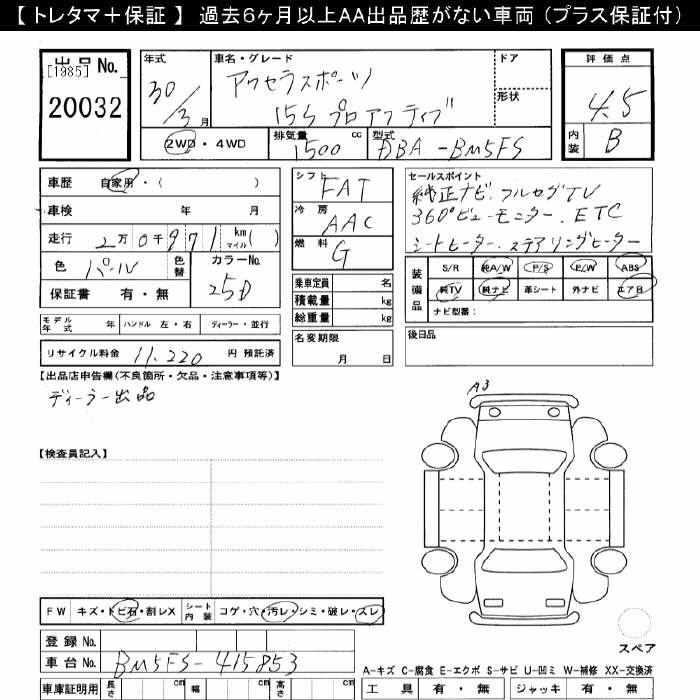 【 トレタマ＋保証 】 過去6ヶ月以上AA出品歴がない車両 (プラス保証付)
出品 No.
[1985]
20032
年式
30/3月
車名・グレード
アクセラスポーツ
15S プロアクティブ
ドア
形状
評価点
4.5
内装 B
2WD・4WD
排気量 1500 cc
型式 DBA-BM5FS
車歴 自家用・( )
車検 年 月
走行 2万0千971 km マイル ( )
色 パール 色替
カラーNo. 25D
保証書 有・無
シフト FAT
冷房 AAC
燃料 G
乗車定員 名
積載量 kg
総重量 kg
セールスポイント
純正ナビ.フルセグTV
360°ビューモニター.ETC
シートヒーター.ステアリングヒーター
装備品
S/R 純A/W P/S P/W ABS
純TV 純ナビ 革シート 外ナビ エアB
ナビ型番:
モデル年式 年 ハンドル 左・右 ディーラー・並行
名変期限
月 日
後日品
リサイクル料金 11,220 円 預託済
【出品店申告欄(不良箇所・欠品・注意事項等)】
ディーラー出品
A3
【検査員記入】
FW キズ・トビ石・割レX
シート内装 コゲ・穴・汚レ・シミ・破レ・スレ
登録 No.
車台 No. BM5FS-415853
スペア
A-キズ C-腐食 E-エクボ S-サビ U-凹ミ W-補修 XX-交換済
車庫証明用 長さ cm 幅 cm 高さ cm
工具 有・無 ジャッキ 有・無